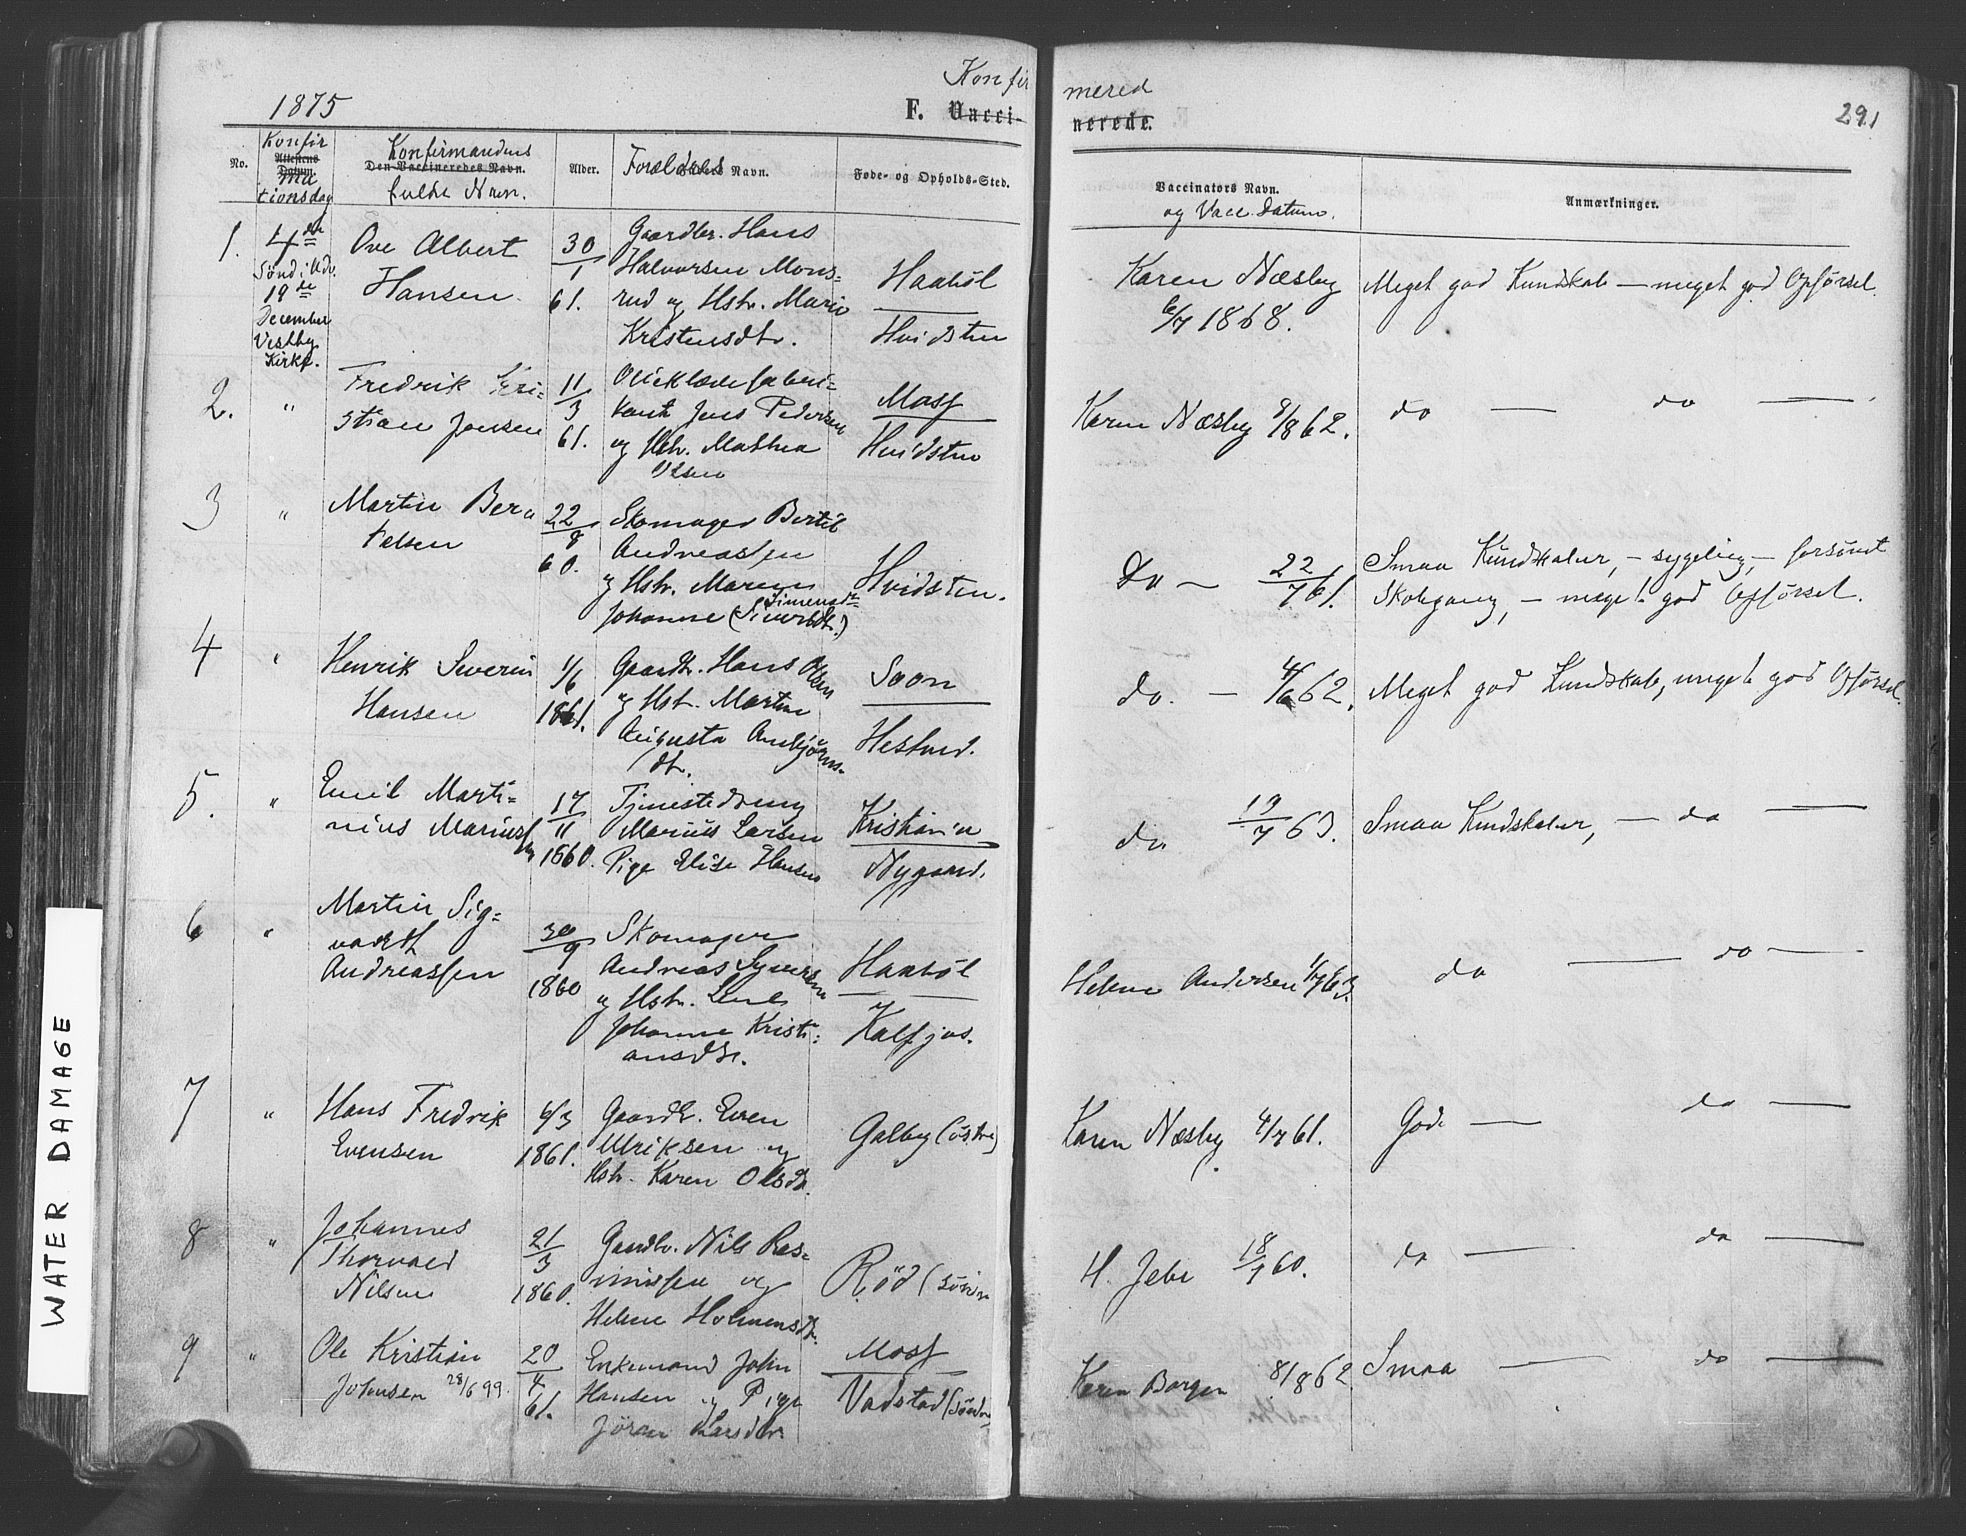 1875
Konfir
mered
291
F. Vacci-
nerede.
No.
Konfir
Attestens
Datum.
ma
tionsdag
Konfirmandens
Den Vaccineredes Navn.
fulde Navn.
Alder.
Forældres Navn.
Føde- og Opholds-Sted.
Vaccinators Navn.
og Vacc. Datum.
Anmærkninger.
1.
4de
Sønd. i Adv.
19de
December
Vestby
Kirke.
Ove Albert
Hansen.
30/1
61.
Gaardbr. Hans
Halvorsen Mons=
rud og Hstr. Marie
Kristensdtr.
Haabøl
Hvidsten
Karen Næsby
6/7 1868.
Meget god Kundskab — meget god Opførsel.
2. "
Fredrik Kri=
stian Jensen
11/3
61.
Olieklædefabri=
kant Jens Pedersen
og Hstr. Mathea
Olsen
Moss
Hvidsten
Karen Næsby 8/8 62.
do — do —
3 "
Martin Ber
telsen
22/8
60.
Skomager Bertil
Andreassen
og Hstr. Maren
Simensdr
Johanne (Siversdtr.)
Hvidsten.
Do — 22/7 61.
Smaa Kundskaber, — sygelig, — forsømt
Skolegang, — meget god Opførsel.
4 "
Henrik Severin
Hansen
1/6
1861.
Gaardbr. Hans Olsen
og Hstr. Martine
Augusta Ambjørns-
dtr.
Soon
Hestud.
do. — 4/6 62.
Meget god Kundskab, meget god Opførsel.
5. "
Emil Marti=
nius Mariussen
17/11
1860.
Tjenestedreng
Marius Larsen
Pige Elise Hansen
Kristiania
Nygaard.
do 19/7 63.
Smaa Kundskaber, — do —
6 "
Martin Sig=
vardt
Andreassen
30/9
1860
Skomager
Andreas Syversen
og Hstr. Lene
Johanne Kristi=
ansdtr.
Haabøl
Kalfjøs.
Helene Andersen 1/7 63.
do — do —
7 "
Hans Fredrik
Evensen
6/3
1861.
Gaardbr. Even
Ulriksen og
Hstr. Karen Olsdtr.
Galby (østre)
Karen Næsby 4/7 61.
Gode — do —
8 "
Johannes
Thorvald
Nilsen
21/3
1860.
Gaardbr. Nils Ras=
mussen og
Helene Holmensdtr.
Rød (søndre
H. Jebe 18/7 60.
do — do —
9 "
Ole Kristian
Johnsen 28/6 99.
20/4
61.
Enkemand John
Hansen og Pige
Jøran Larsdtr.
Moss
Vadstad (søndre
Karen Borgen 8/8 62
Smaa — do —
WATER DAMAGE